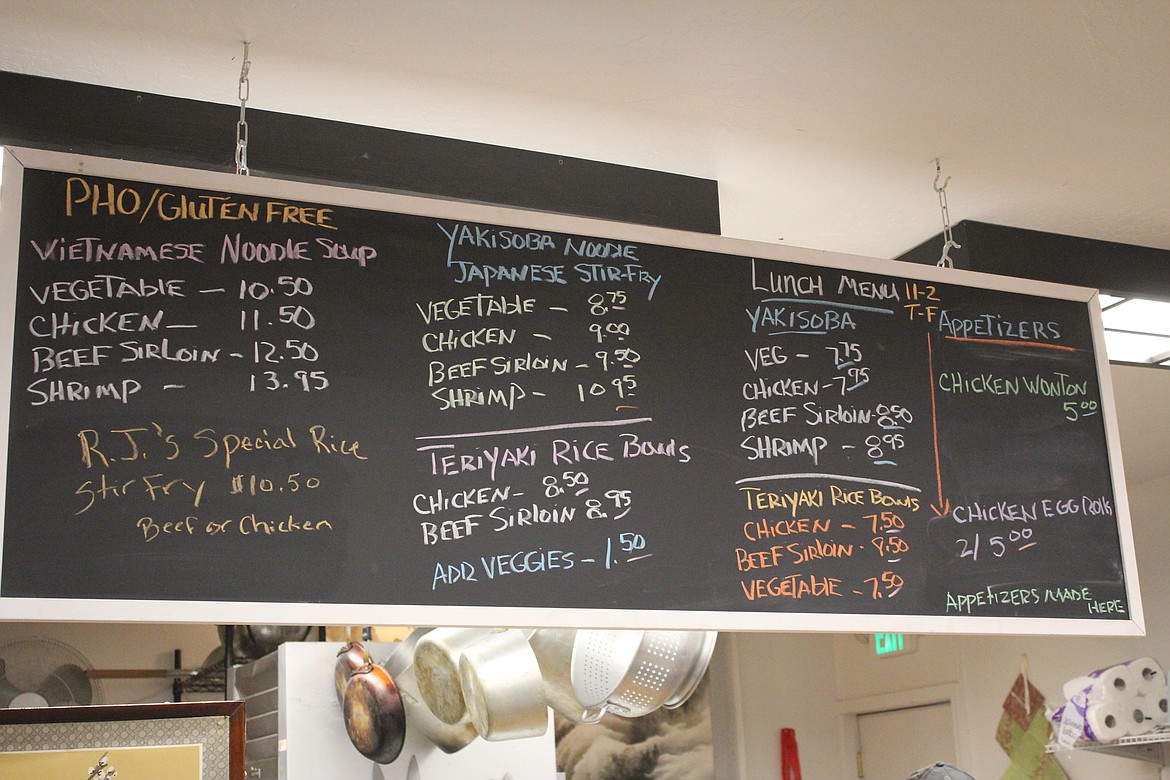 PHO/GLUTEN FREE
VIETNAMESE NOODLE SOUP
VEGETABLE - 10.50
CHICKEN - 11.50
BEEF SIRLOIN - 12.50
SHRIMP - 13.95
R.J.'s Special Rice
Stir Fry $10.50
Beef or Chicken
YAKISOBA NOODLE
JAPANESE STIR-FRY
VEGETABLE - 8.75
CHICKEN - 9.00
BEEF SIRLOIN - 9.50
SHRIMP - 10 95
TERIYAKI RICE BOWLS
CHICKEN - 8.50
BEEF SIRLOIN 8.95
ADD VEGGIES - 1.50
LUNCH MENU 11-2
T-F
YAKISOBA
VEG - 7.75
CHICKEN - 7.95
BEEF SIRLOIN - 8.50
SHRIMP - 8.95
TERIYAKI RICE BOWLS
CHICKEN - 7.50
BEEF SIRLOIN - 8.50
VEGETABLE - 7.50
APPETIZERS
CHICKEN WONTON
5.00
CHICKEN EGG ROLL
2/ 5.00
APPETIZERS MADE
HERE
EXIT